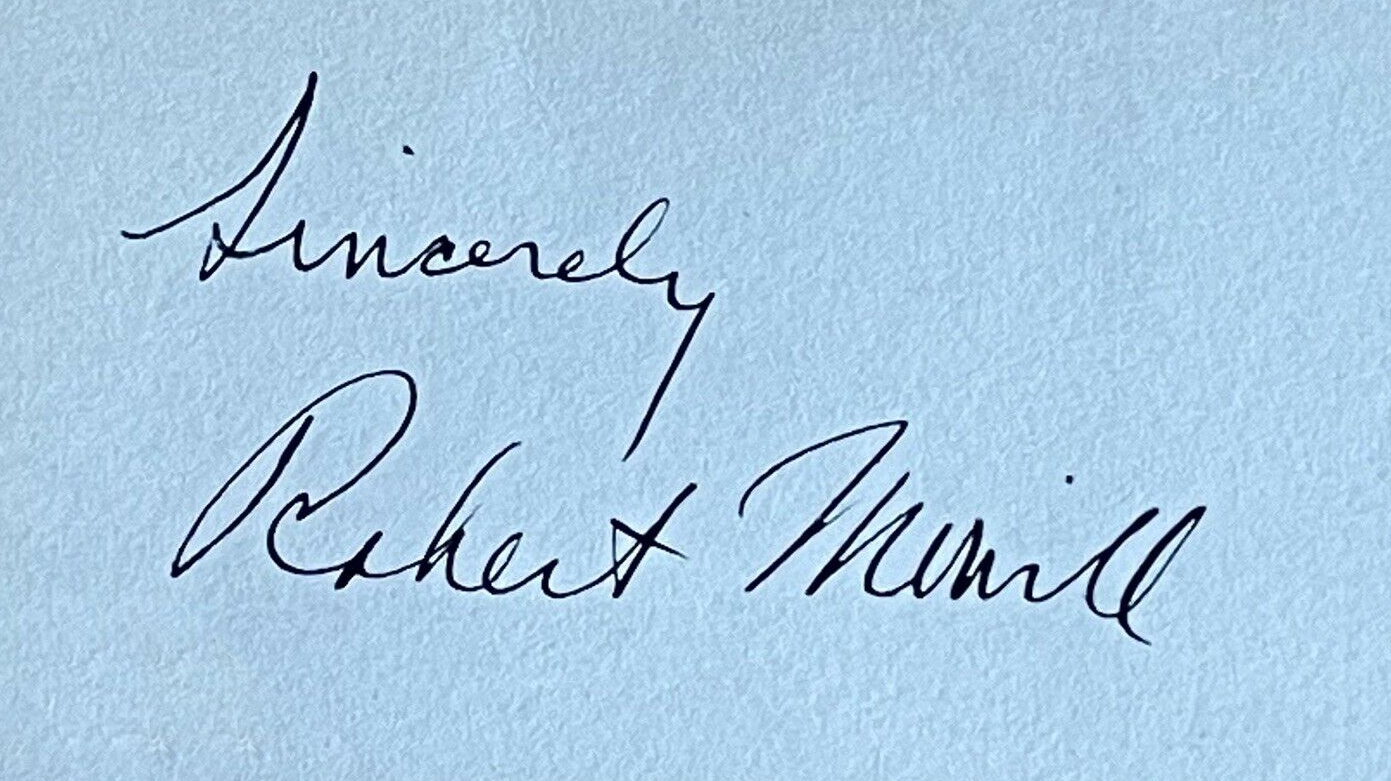 Sincerely
Robert Merrill